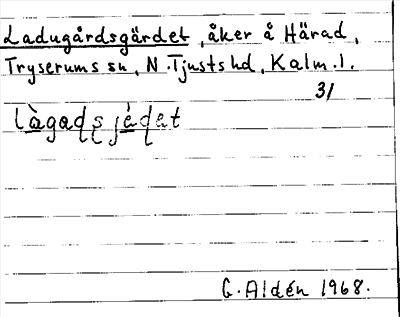 Ladugårdsgärdet, åker å Härad,
Tryserums sn, N. Tjusts hd, Kalm. l.
31
G. Aldén 1968.